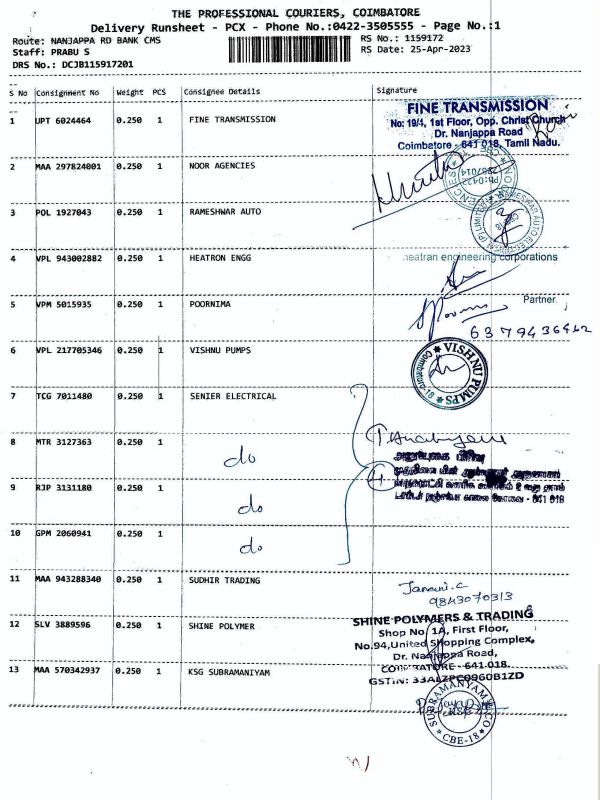 THE PROFESSIONAL COURIERS, COIMBATORE
Delivery Runsheet - PCX - Phone No.:0422-3505555 - Page No.:1
Route: NANJAPPA RD BANK CMS
RS No.: 1159172
Staff: PRABU S
RS Date: 25-Apr-2023
DRS No.: DCJB115917201
S No Consignment No Weight PCS Consignee Details Signature
1 UPT 6024464 0.250 1 FINE TRANSMISSION
FINE TRANSMISSION
No: 19/4, 1st Floor, Opp. Christ Church
Dr. Nanjappa Road
Coimbatore - 641 018, Tamil Nadu.
2 MAA 297824001 0.250 1 NOOR AGENCIES
3 POL 1927043 0.250 1 RAMESHWAR AUTO
4 VPL 943002882 0.250 1 HEATRON ENGG
heatran engineering corporations
Partner
5 VPM 5015935 0.250 1 POORNIMA
Poornima
6379436412
6 VPL 217705346 0.250 1 VISHNU PUMPS
VISHNU PUMPS
Coimbatore-18
7 TCG 7011480 0.250 1 SENIER ELECTRICAL
8 MTR 3127363 0.250 1 do
9 RJP 3131180 0.250 1 do
4
641 018
10 GPM 2060941 0.250 1 do
11 MAA 943288340 0.250 1 SUDHIR TRADING
Janani.C
9843070313
12 SLV 3889596 0.250 1 SHINE POLYMER
SHINE POLYMERS & TRADING
Shop No 1A, First Floor,
No.94,United Shopping Complex,
Dr. Nanjappa Road,
COIMBATORE - 641.018.
13 MAA 570342937 0.250 1 KSG SUBRAMANIYAM
SUBRAMANYAM & CO
CBE-18